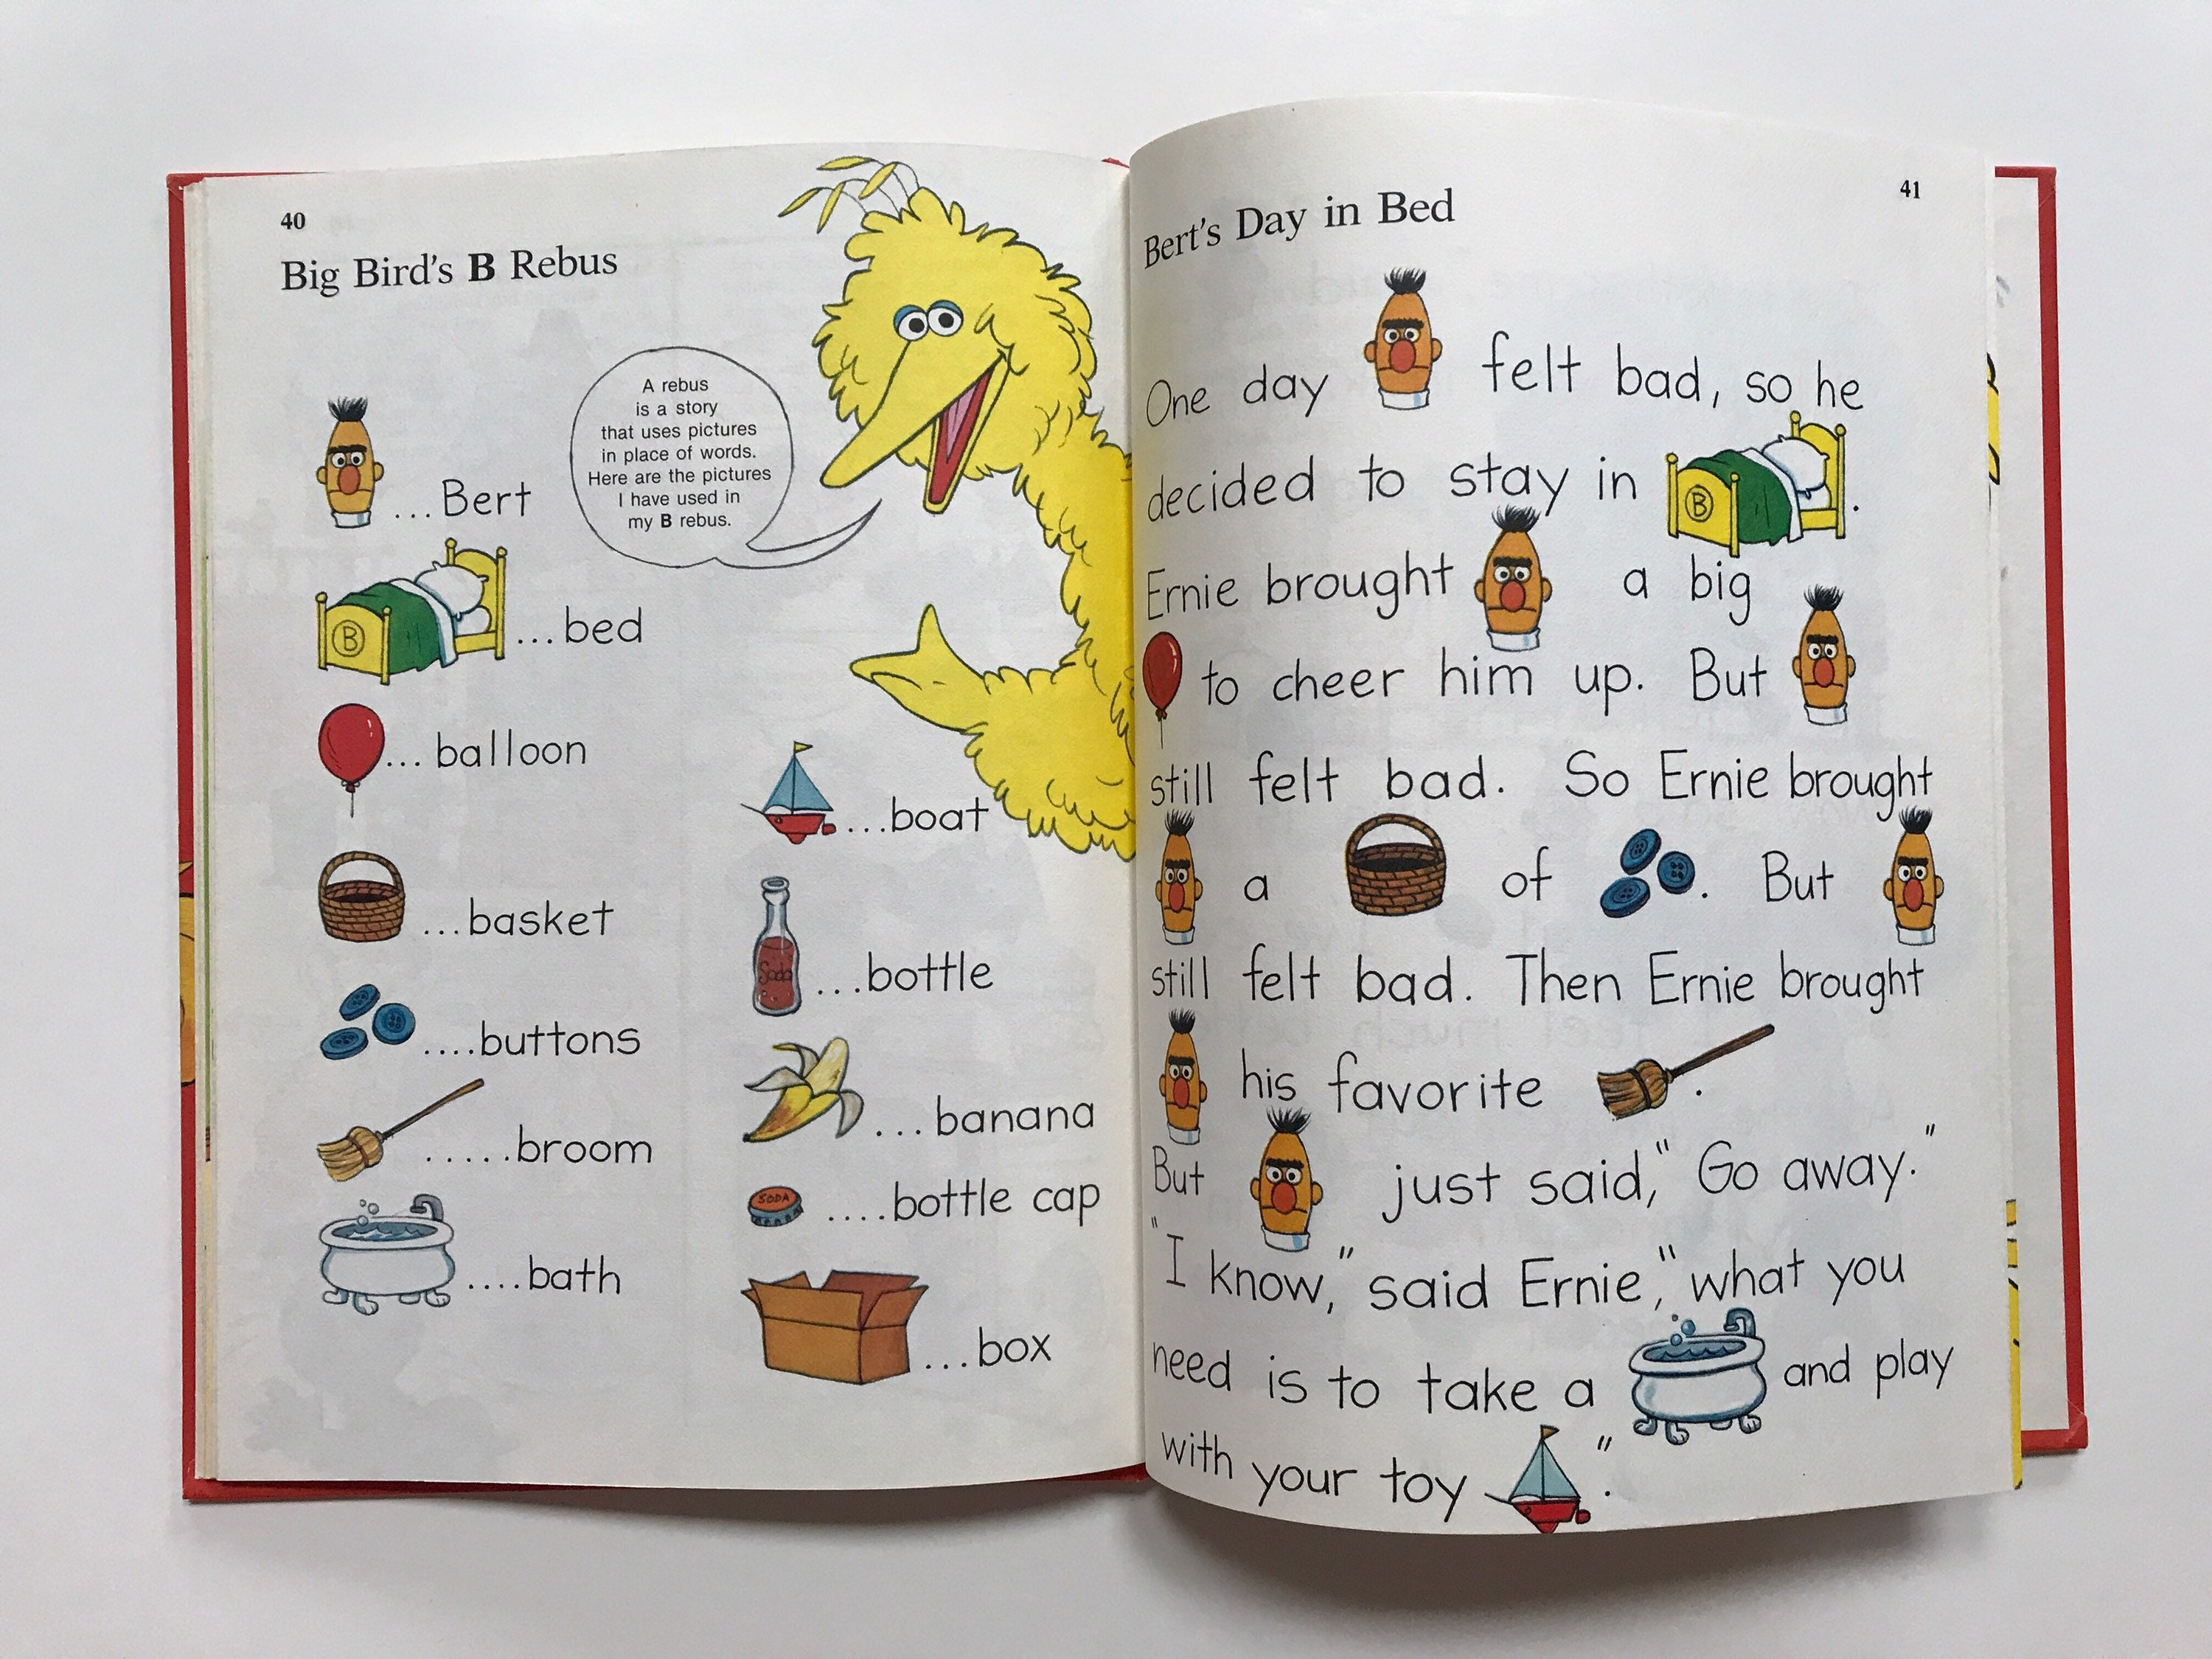 40
Big Bird's B Rebus
A rebus
is a story
that uses pictures
in place of words.
Here are the pictures
I have used in
my B rebus.
...Bert
B
...bed
...balloon
...basket
....buttons
.....broom
....bath
...boat
Soda
...bottle
...banana
SODA
....bottle cap
...box
41
Bert's Day in Bed
One day felt bad, so he
decided to stay in
B
.
Ernie brought a big
to cheer him up. But
still felt bad. So Ernie brought
a of . But
still felt bad. Then Ernie brought
his favorite .
But just said, "Go away."
"I know," said Ernie, "what you
need is to take a and play
with your toy ."